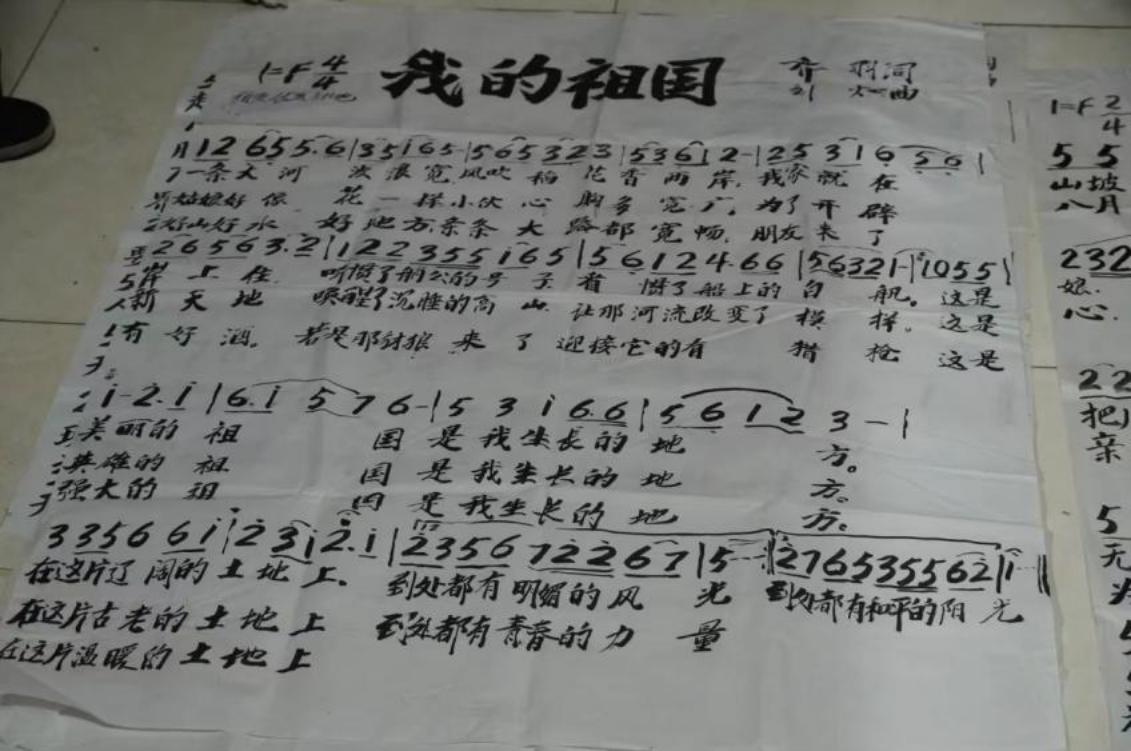 我的祖国
1=F 4/4
词
刘 炽曲
1 2 6 5 5. 6 | 3 5 1 6 5 - | 5 6 5 3 2 3 | 5 3 6 1 2 - | 2 5 3 1 6 5 6 |
一条大河 波浪宽 风吹稻花香两岸, 我家就在
姑娘好像 花一样 小伙心胸多宽广, 为了开辟
好山好水 好地方 条条大路都宽畅, 朋友来了
2 6 5 6 3. 2 | 1 2 2 3 5 5 1 6 5 | 5 6 1 2 4. 6 6 | 5 6 3 2 1 - | 1 0 5 5 |
岸上住 听惯了船公的号子 看惯了船上的白帆。这是
新天地 唤醒了沉睡的高山 让那河流改变了模样。这是
有好酒。若是那豺狼来了 迎接它的有猎枪 这是
i - 2. i | 6. i 5 7 6 - | 5 3 i 6. 6 | 5 6 1 2 3 - |
美丽的祖国 是我生长的地方。
英雄的祖国 是我生长的地方。
强大的祖国 是我生长的地方。
3 3 5 6 6 i | 2 3 i 2. i | 2 3 5 6 7 2 2 6 7 | 5 - | 2 7 6 5 3 5 5 6 2 | i
在这片辽阔的土地上。到处都有明媚的风光 到处都有和平的阳光
在这片古老的土地上 到处都有青春的力量
在这片温暖的土地上
1=F 2/4
5 5
山坡
八月
2 3 2
娘.
心.
2 2
把
亲
5
无